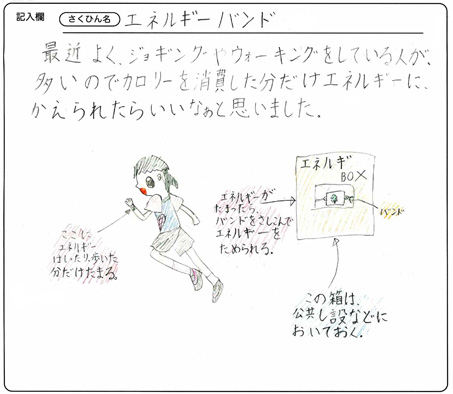 記入欄 さくひん名 エネルギーバンド
最近よく、ジョギングやウォーキングをしている人が、
多いのでカロリーを消費した分だけエネルギーに、
かえられたらいいなぁと思いました。
ここに
エネルギー
はしったり、歩いた
分だけたまる。
エネルギーが
たまったら、
バンドをさしこんで
エネルギーを
ためられる。
エネルギ
BOX
バンド
この箱は、
公共し設などに
おいておく.